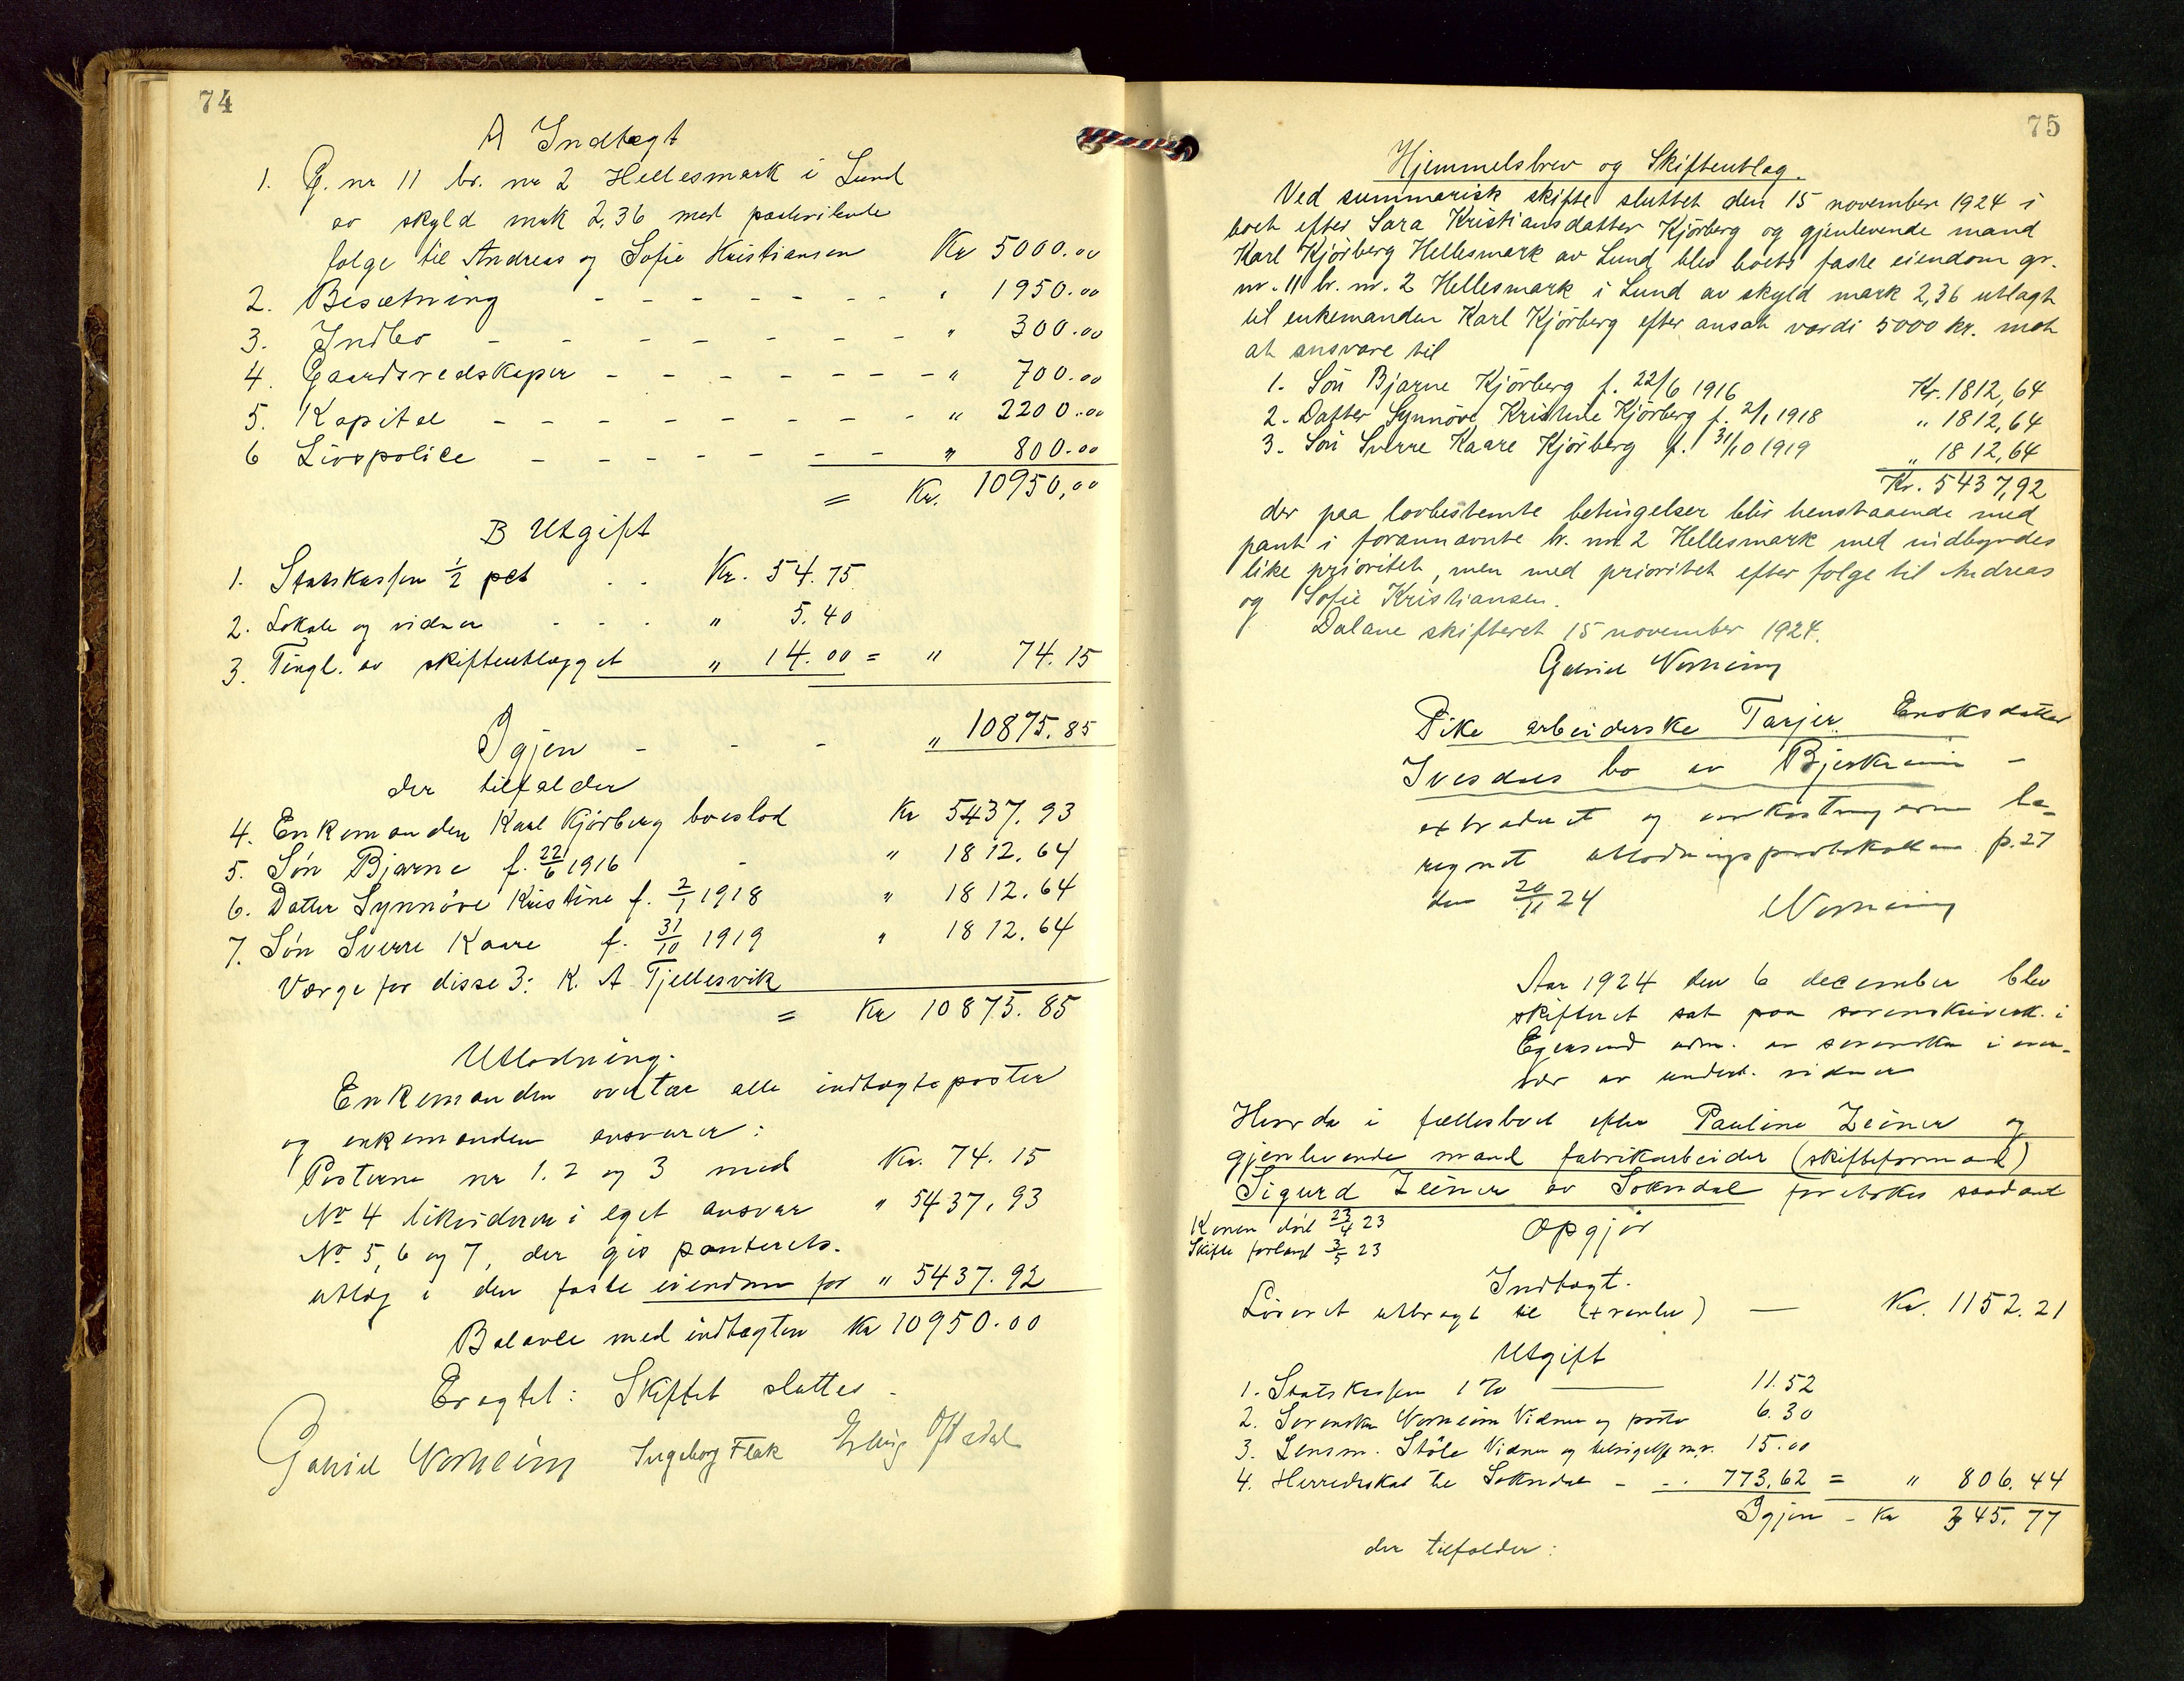 74
A Indtægt
1. G. nr 11 br. nr 2 Hellesmark i Lund
av skyld mrk 2,36 med paahvilende
følge til Andreas og Sofie Kristiansen Kr 5000.00
2. Besætning - - - - - - - " 1950.00
3. Indbo - - - - - - - " 300.00
4. Gaardsredskaper - - - - - - - " 700.00
5. Kapital - - - - - - - " 2200.00
6 Livspolice - - - - - - - " 800.00
= Kr. 10950,00
B Utgift
1. Statskassen ½ pct . . Kr. 54.75
2. Lokale og vidner - - . " 5.40
3. Tingl. av skifteutlægget " 14.00 = " 74.15
Igjen - - - " 10875.85
der tilfalder
4. Enkemanden Karl Kjörberg boeslod Kr 5437.93
5. Søn Bjarne f. 22/6 1916 - " 1812.64
6. Datter Synnöve Kristine f. 2/1 1918 " 1812.64
7. Søn Sverre Kaare f. 31/10 1919 " 1812.64
Værge for disse 3: K. A Tjellesvik
= Kr 10875.85
Utlodning.
Enkemanden overtar alle indtægtsposter
og enkemanden ansvarer:
Posterne nr 1. 2 og 3 med Kr. 74.15
No 4 likviderer i eget ansvar " 5437,93
No 5, 6 og 7, der gis panterets-
utlæg i den faste eiendom for " 5437.92
Balance med indtægten Kr 10950.00
Eragtet: Skiftet sluttes -
Gabriel Norheim Ingeborg Flak Erling Oftedal
75
Hjemmelsbrev og Skifteutlæg.
Ved summarisk skifte sluttet den 15 november 1924 i
boet efter Sara Kristiansdatter Kjörberg og gjenlevende mand
Karl Kjörberg Hellesmark av Lund blev boets faste eiendom gr.
nr. 11 br. nr. 2 Hellesmark i Lund av skyld mark 2,36 utlagt
til enkemanden Karl Kjörberg efter ansat værdi 5000 kr. mot
at ansvare til
1. Sön Bjarne Kjörberg f. 22/6 1916 Kr. 1812,64
2. Datter Synnöve Kristine Kjörberg f. 2/1 1918 " 1812,64
3. Sön Sverre Kaare Kjörberg f. 31/10 1919 " 1812,64
Kr. 5437,92
der paa lovbestemte betingelser blir henstaaende med
pant i forannævnte br. nr. 2 Hellesmark med indbyrdes
like prioritet, men med prioritet efter følge til Andreas
og Sofie Kristiansen.
Dalane skifteret 15 november 1924.
Gabriel Norheim
Pike arbeiderske Tarjer Enoksdatter
Ivesdals bo av Bjerkreim -
extraderet og omkostningerne be-
regnet utlodningsprotokollen p. 27
den 20/11 24 Norheim
Aar 1924 den 6 december blev
skifteret sat paa sorenskriverk. i
Egersund adm. av sorenskr i over-
vær av undert. vidner
Hvorda i fællesboet efter Pauline Zeiner og
gjenlevende mand fabrikarbeider (skifteformand)
Sigurd Zeiner av Sokndal foretokes saadant
Konen död 23/4 23
Skifte forlangt 3/5 23
Opgjør
Indtægt.
Løsøret utbragt til (+ renter) — Kr. 1152.21
Utgift
1. Statskassen 1 % — 11.52
2. Sorenskr Norheim Vidner og porto 6.30
3. Lensm. Stöle Vidner og m.v. 15.00
4. Herredskas til Sokndal - - . 773,62 = " 806.44
Igjen - Kr 345.77
der tilfalder: